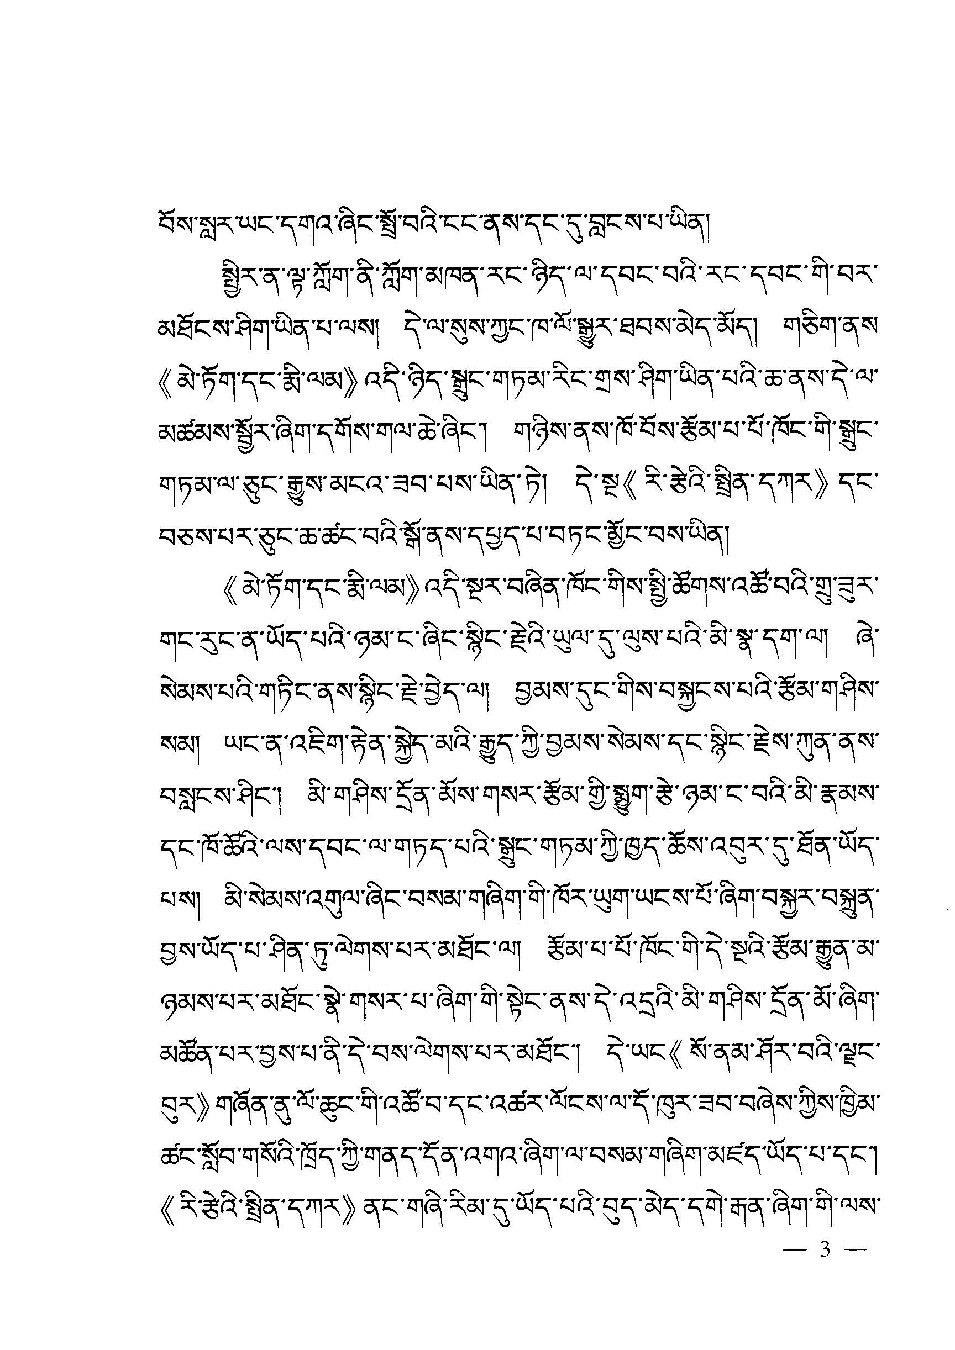 བོས་སླར་ཡང་དགའ་ཞིང་སྤྲོ་བའི་ངང་ནས་དང་དུ་བླངས་པ་ཡིན།
སྤྱིར་ན་ལྟ་ཀློག་ནི་ཀློག་མཁན་རང་ཉིད་ལ་དབང་བའི་རང་དབང་གི་བར་
མཐོངས་ཤིག་ཡིན་པ་ལས། དེ་ལ་སུས་ཀྱང་ཁ་ལོ་སྒྱུར་ཐབས་མེད་མོད། གཅིག་ནས
《མེ་ཏོག་དང་རྨི་ལམ》འདི་ཉིད་སྒྲུང་གཏམ་རིང་གྲས་ཤིག་ཡིན་པའི་ཆ་ནས་དེ་ལ་
མཚམས་སྦྱོར་ཞིག་དགོས་གལ་ཆེ་ཞིང་། གཉིས་ནས་ཁོ་བོས་རྩོམ་པ་པོ་ཁོང་གི་སྒྲུང་
གཏམ་ལ་ཅུང་རྒྱུས་མངའ་ཟབ་པས་ཡིན་ཏེ། དེ་སྔ《རི་རྩེའི་སྤྲིན་དཀར》དང་
བཅས་པར་ཅུང་ཆ་ཚང་བའི་སྒོ་ནས་དཔྱད་པ་བཏང་མྱོང་བས་ཡིན།
《མེ་ཏོག་དང་རྨི་ལམ》འདི་སྔར་བཞིན་ཁོང་གིས་སྤྱི་ཚོགས་འཚོ་བའི་གྲུ་ཟུར་
གང་རུང་ན་ཡོད་པའི་ཉམ་ང་ཞིང་སྙིང་རྗེའི་ཡུལ་དུ་ལུས་པའི་མི་སྣ་དག་ལ། ཞེ་
སེམས་པའི་གཏིང་ནས་སྙིང་རྗེ་བྱེད་ལ། བྱམས་དུང་གིས་བསྐྱངས་པའི་རྩོམ་གཤིས་
སམ། ཡང་ན་འཇིག་རྟེན་སྐྱེད་མའི་རྒྱུད་ཀྱི་བྱམས་སེམས་དང་སྙིང་རྗེས་ཀུན་ནས་
བསླངས་ཤིང་། མི་གཤིས་དྲོན་མོས་གསར་རྩོམ་གྱི་སྨྱུག་རྩེ་ཉམ་ང་བའི་མི་རྣམས་
དང་ཁོ་ཚོའི་ལས་དབང་ལ་གཏད་པའི་སྒྲུང་གཏམ་ཀྱི་ཁྱད་ཆོས་འབུར་དུ་ཐོན་ཡོད་
པས། མི་སེམས་འགུལ་ཞིང་བསམ་གཞིག་གི་ཁོར་ཡུག་ཡངས་པོ་ཞིག་བསྐྱར་བསྐྲུན་
བྱས་ཡོད་པ་ཤིན་ཏུ་ལེགས་པར་མཐོང་ལ། རྩོམ་པ་པོ་ཁོང་གི་དེ་སྔའི་རྩོམ་རྒྱུན་མ་
ཉམས་པར་མཐོང་སྣེ་གསར་པ་ཞིག་གི་སྟེང་ནས་དེ་འདྲའི་མི་གཤིས་དྲོན་མོ་ཞིག་
མཚོན་པར་བྱས་པ་ནི་དེ་བས་ལེགས་པར་མཐོང་། དེ་ཡང《སོ་ནམ་ཤོར་བའི་ལྗང་
བུར》གཞོན་ནུ་ལོ་ཆུང་གི་འཚོ་བ་དང་འཚར་ལོངས་ལ་དོ་ཁུར་ཟབ་བཞེས་ཀྱིས་ཁྱིམ་
ཚང་སློབ་གསོའི་ཁྲོད་ཀྱི་གནད་དོན་འགའ་ཞིག་ལ་བསམ་གཞིག་མཛད་ཡོད་པ་དང་།
《རི་རྩེའི་སྤྲིན་དཀར》ནང་གཞི་རིམ་དུ་ཡོད་པའི་བུད་མེད་དགེ་རྒན་ཞིག་གི་ལས་
— 3 —